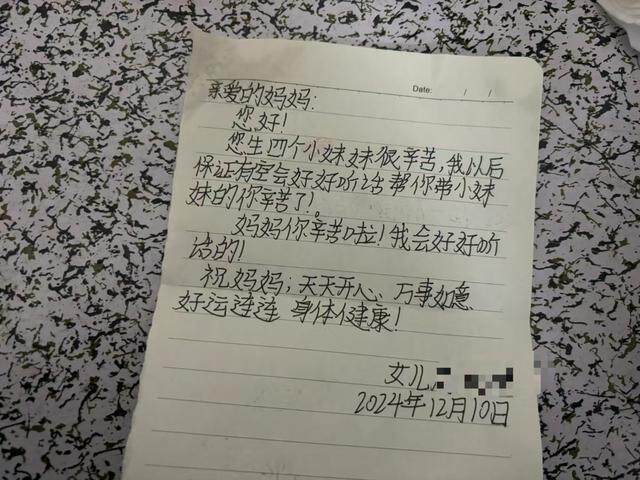 Date: / /
亲爱的妈妈:
您好!
您生四个小妹妹很辛苦,我以后
保证有空会好好听话帮你带小妹
妹的你辛苦了!
妈妈你辛苦啦!我会好好听
话的!
祝妈妈;天天开心、万事如意
好运连连 身体健康!
女儿
2024年12月10日